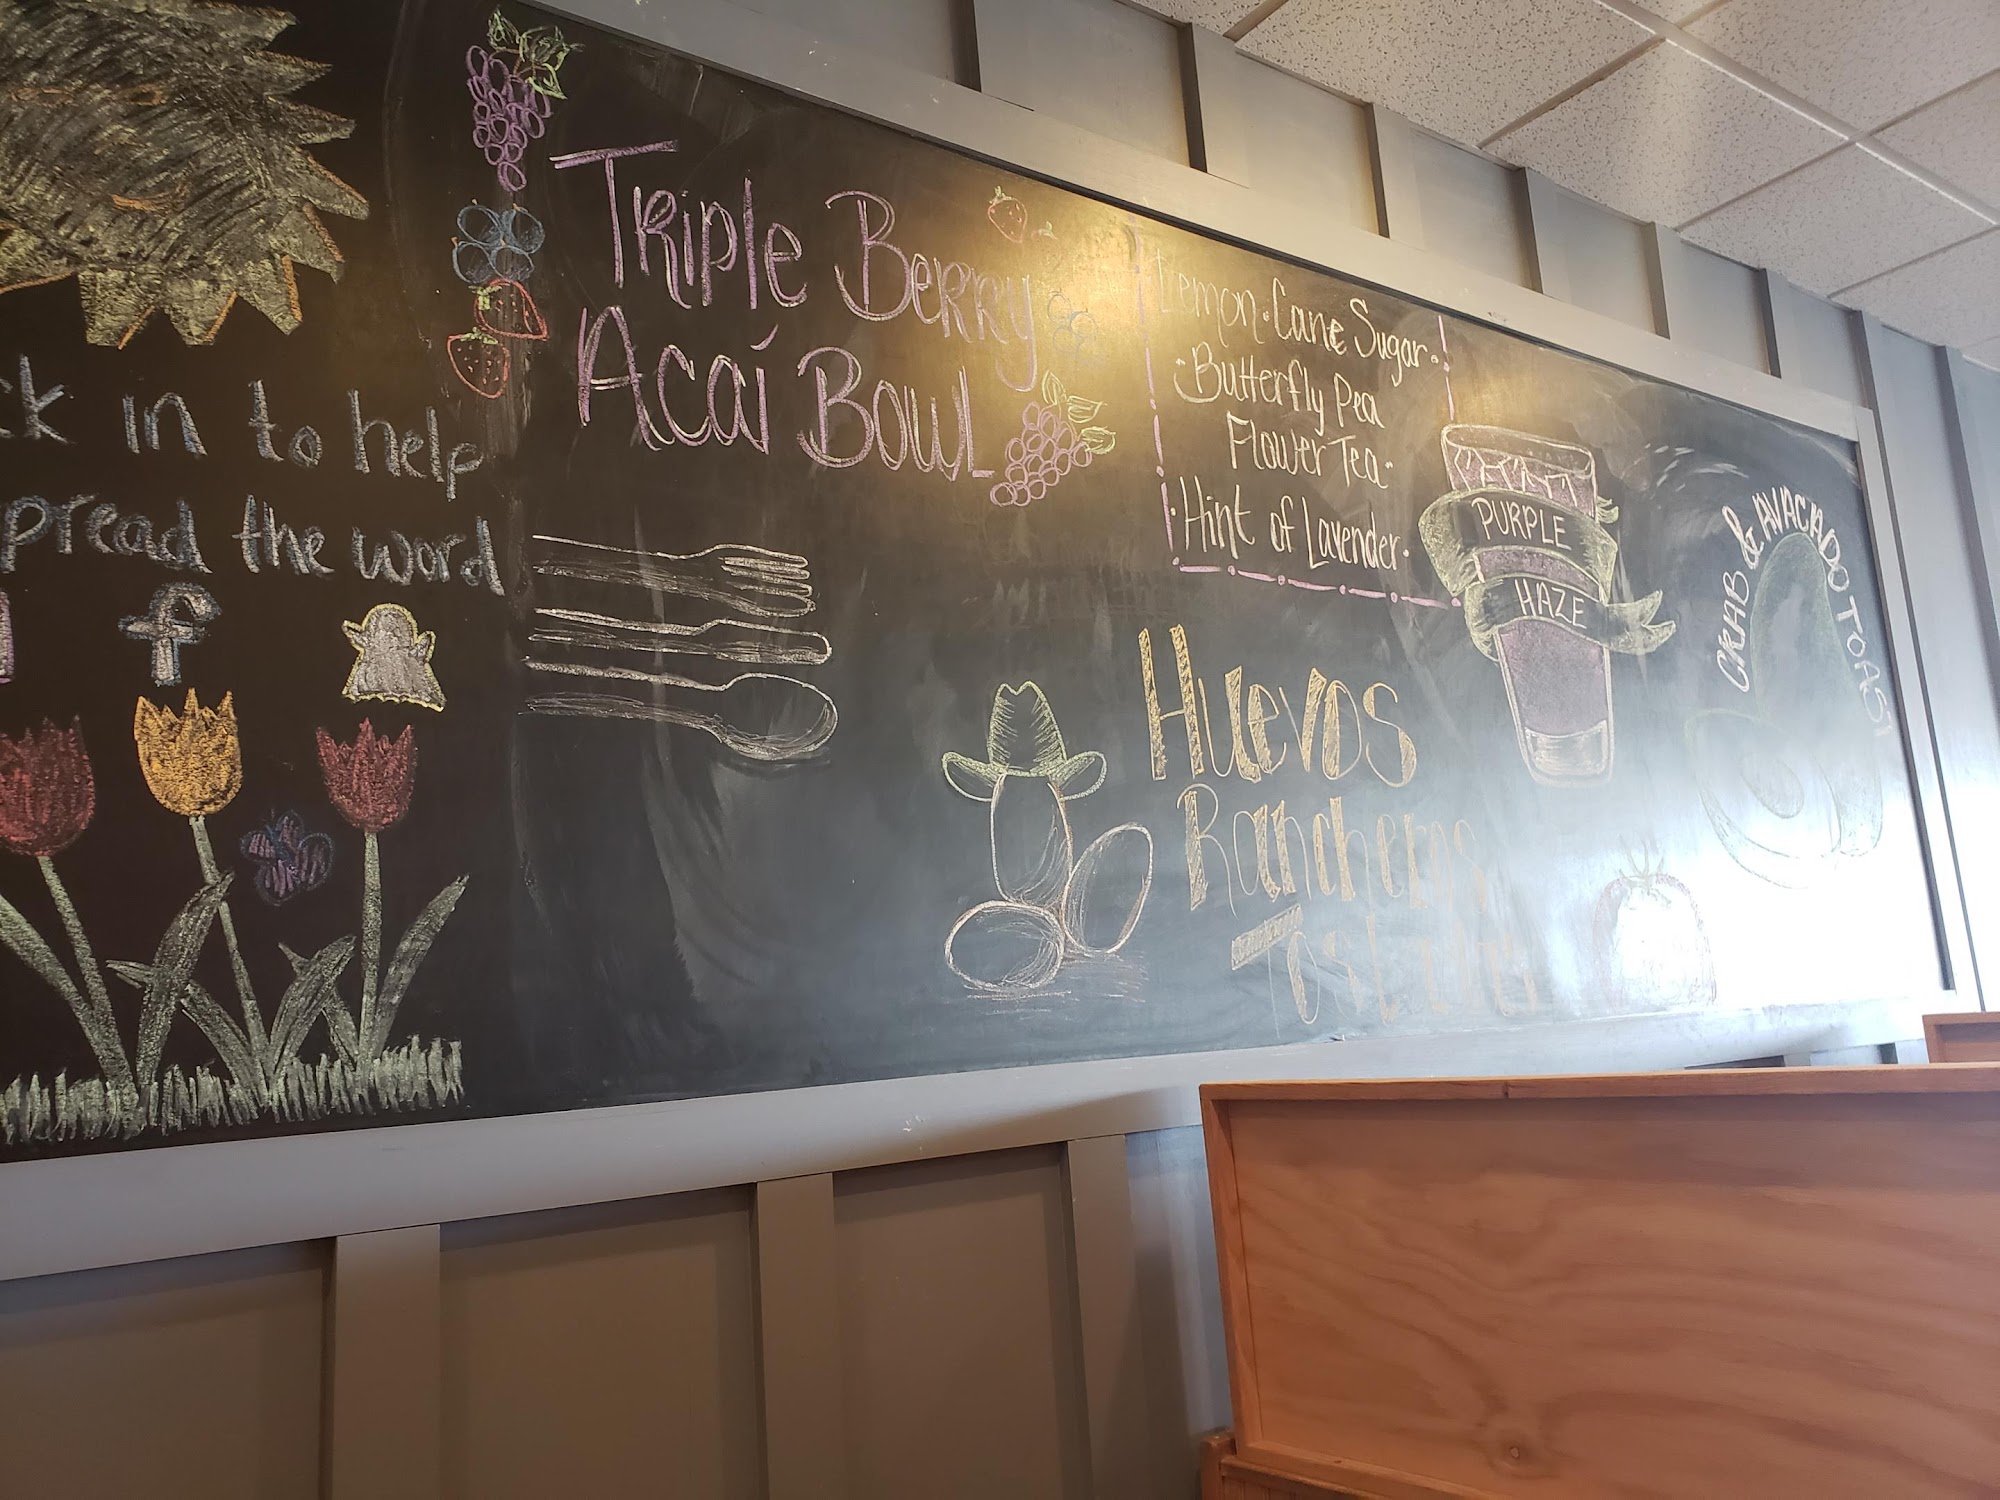 in to help
spread the word
f
Triple Berry
Acaí Bowl
Lemon · Cane Sugar ·
· Butterfly Pea
Flower Tea ·
· Hint of Lavender ·
PURPLE
HAZE
CRAB & AVACADO TOAST
Huevos
Rancheros